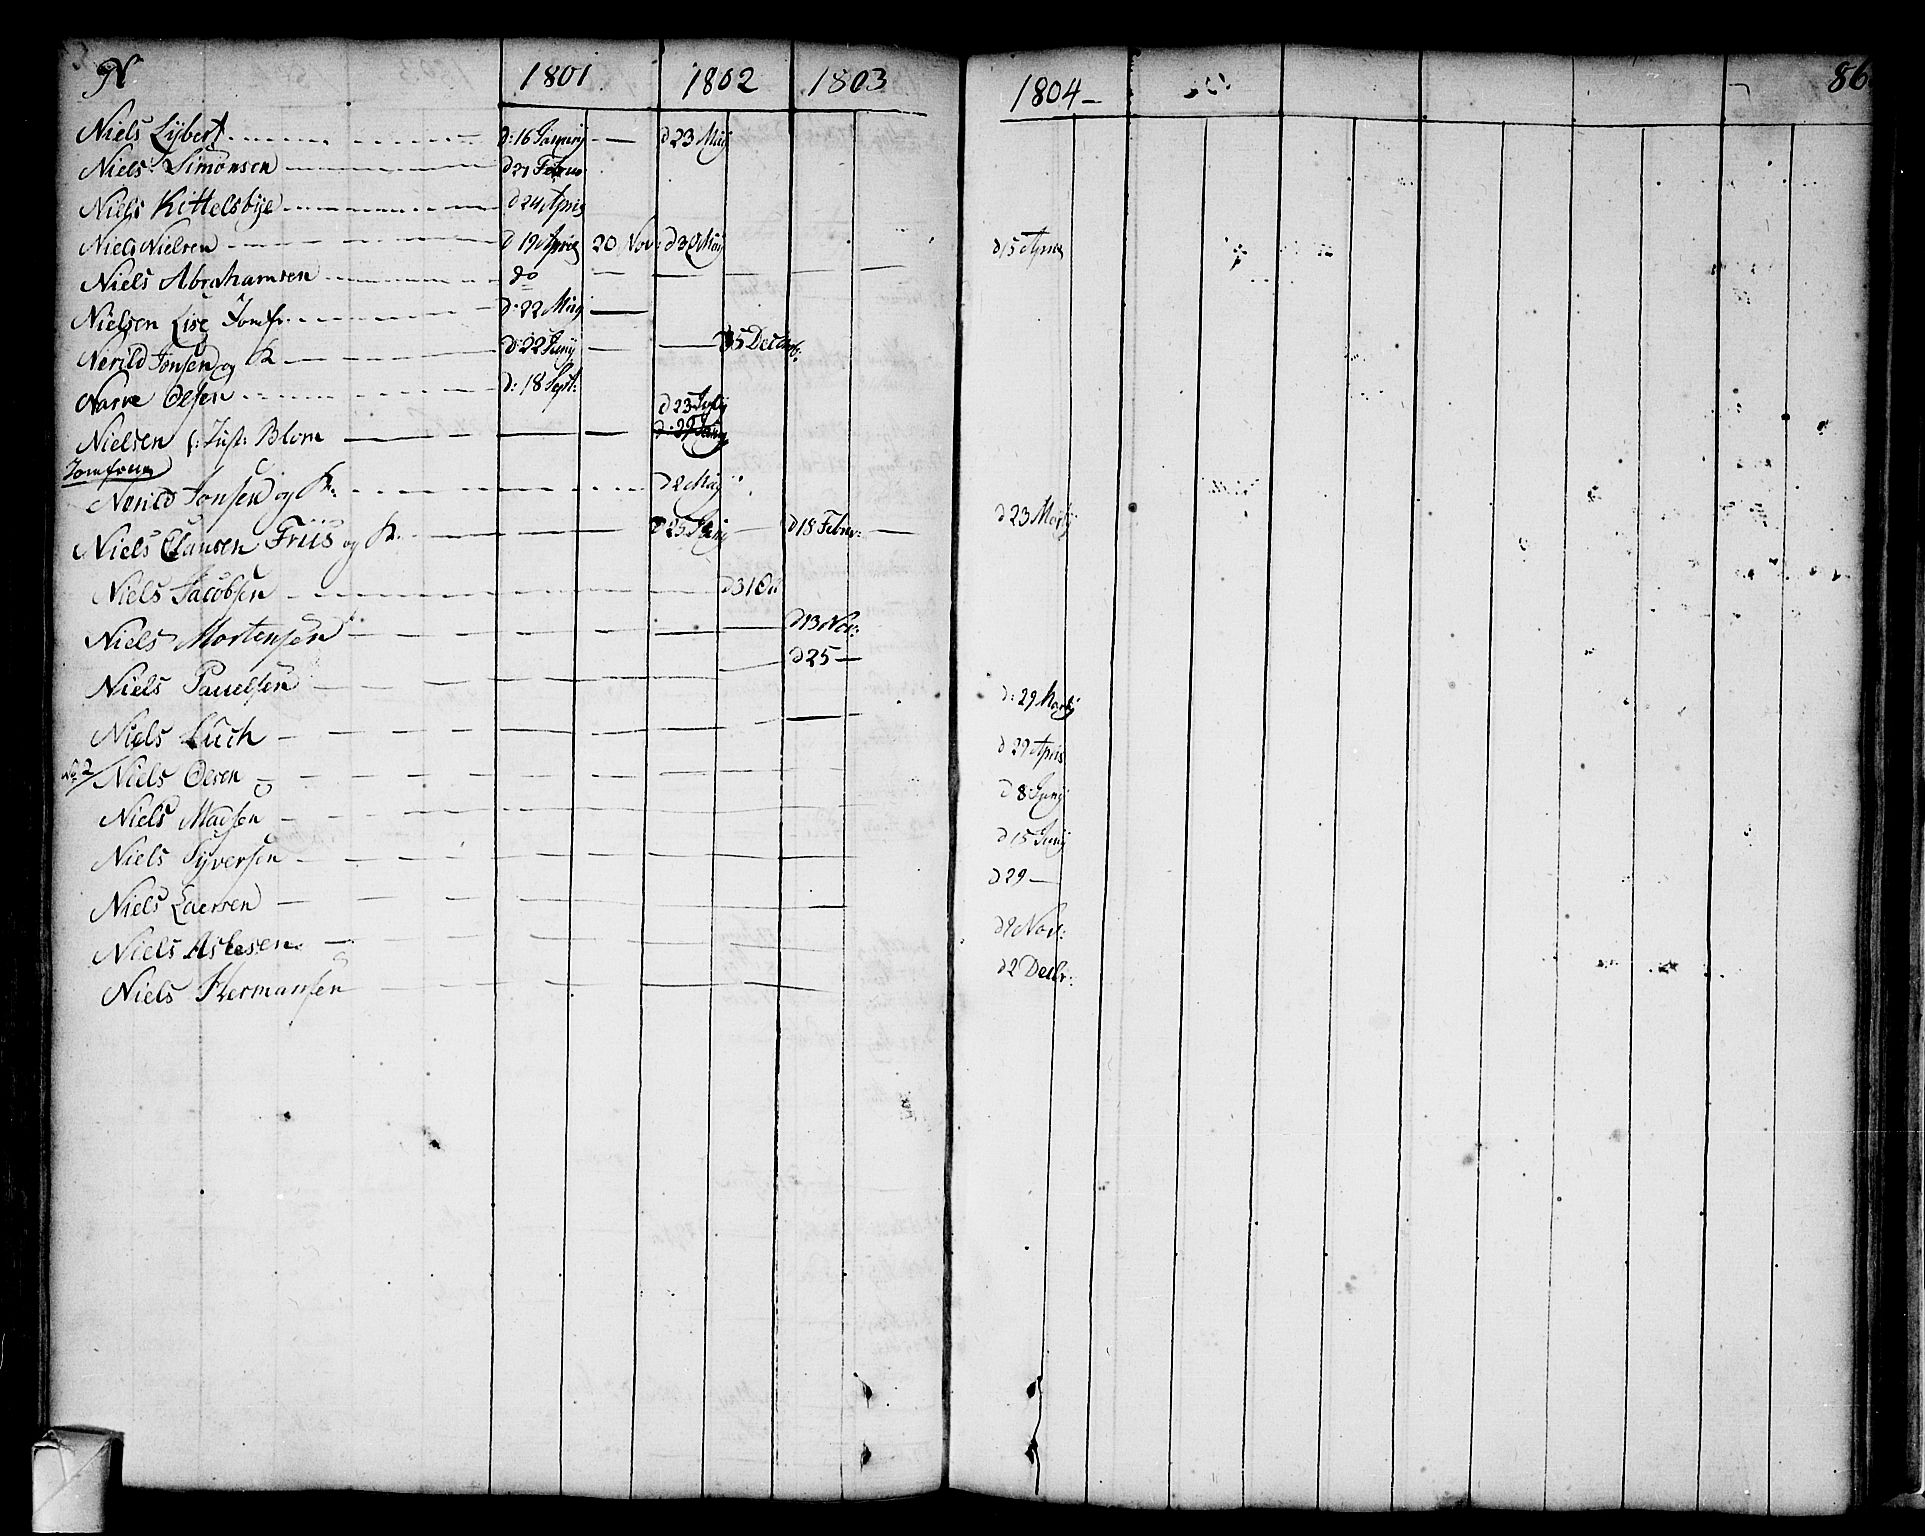 N 1801 1802 1803 1804 86
Niels Lybert d: 16 Januarij d 23 Maij
Niels Simonsen d 21 Febru
Niels Kittelsbye d 24 April
Niels Nielsen d 19 April 20 Nov: d 30 Maij d 15 April
Niels Abrahamsen do
Nielsen Lise Jomfr. d: 22 Maij
Nerild Jonsen og K d: 22 Junij 5 Decemb:
Narve Olsen d: 18 Sept:
d 23 July
Nielsen /: Just: Blom
Jomfrue
Nerild Jonsen og K. d 2 Maij
Niels Clausen Friis og K. d 25 Junij d 18 Febru: d 23 Martij
Niels Jacobsen d 31 Oct
Niels Mortensen d 13 Nov:
Niels Pauelsen d 25
Niels Luch d: 29 Martij
No 2/ Niels Olsen d 29 April
Niels Madsen d 8 Junij
Niels Syversen d 15 Junij
Niels Laersen d 29
Niels Aslesen d 9 Nov:
Niels Hermansen d 2 Decbr: